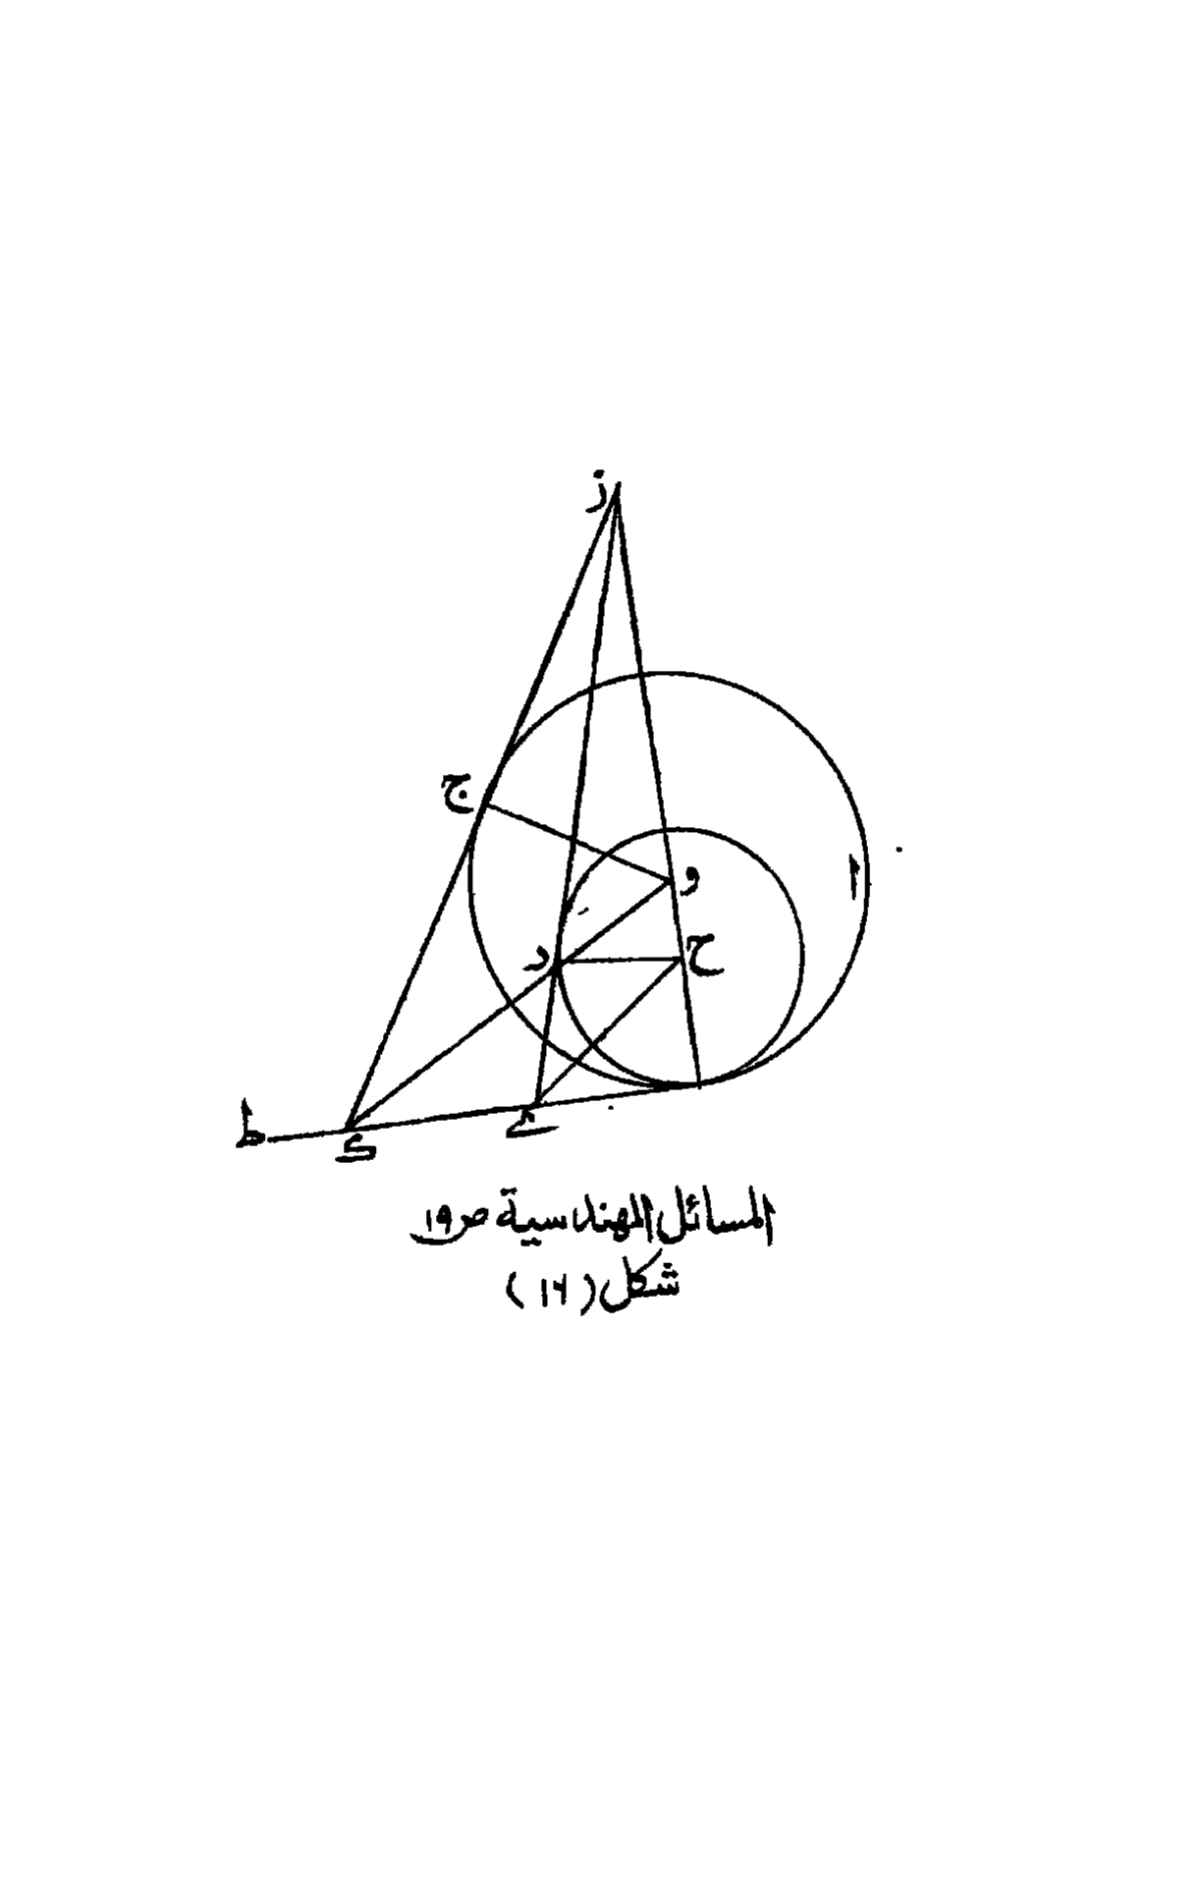 ز
ج
و
ا
د
ح
ط
ك
ے
المسائل الهندسية ص ١٩
شكل (١٦)